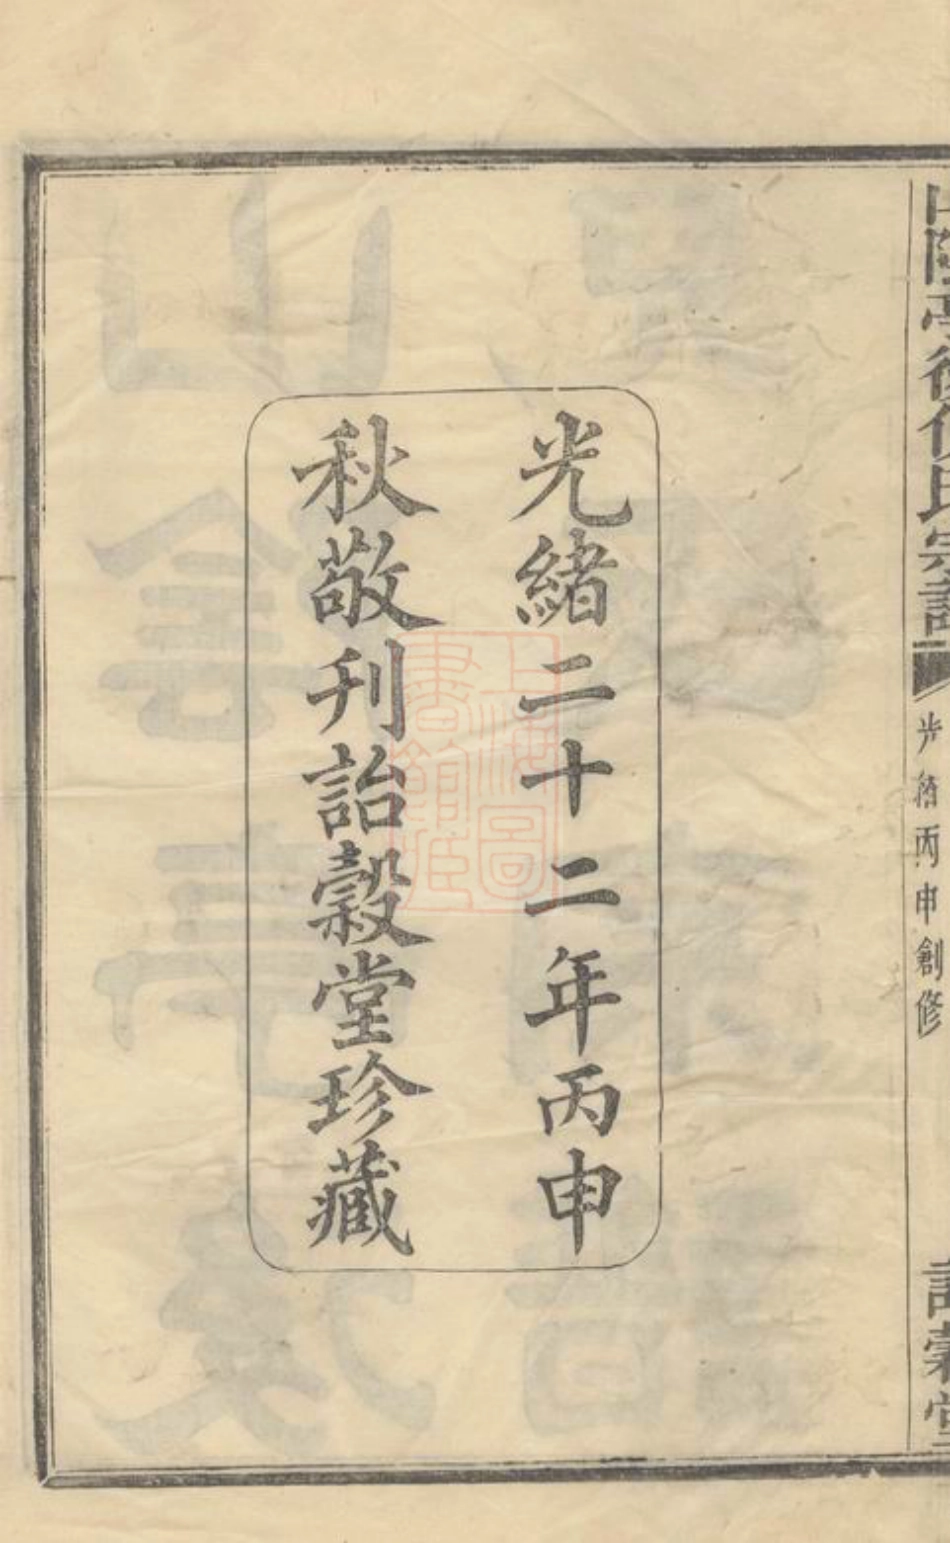 山陰亭後氏宗譜
光緒丙申創修
詒穀堂
光緒二十二年丙申
秋敬刊詒穀堂珍藏
上海圖
書館藏